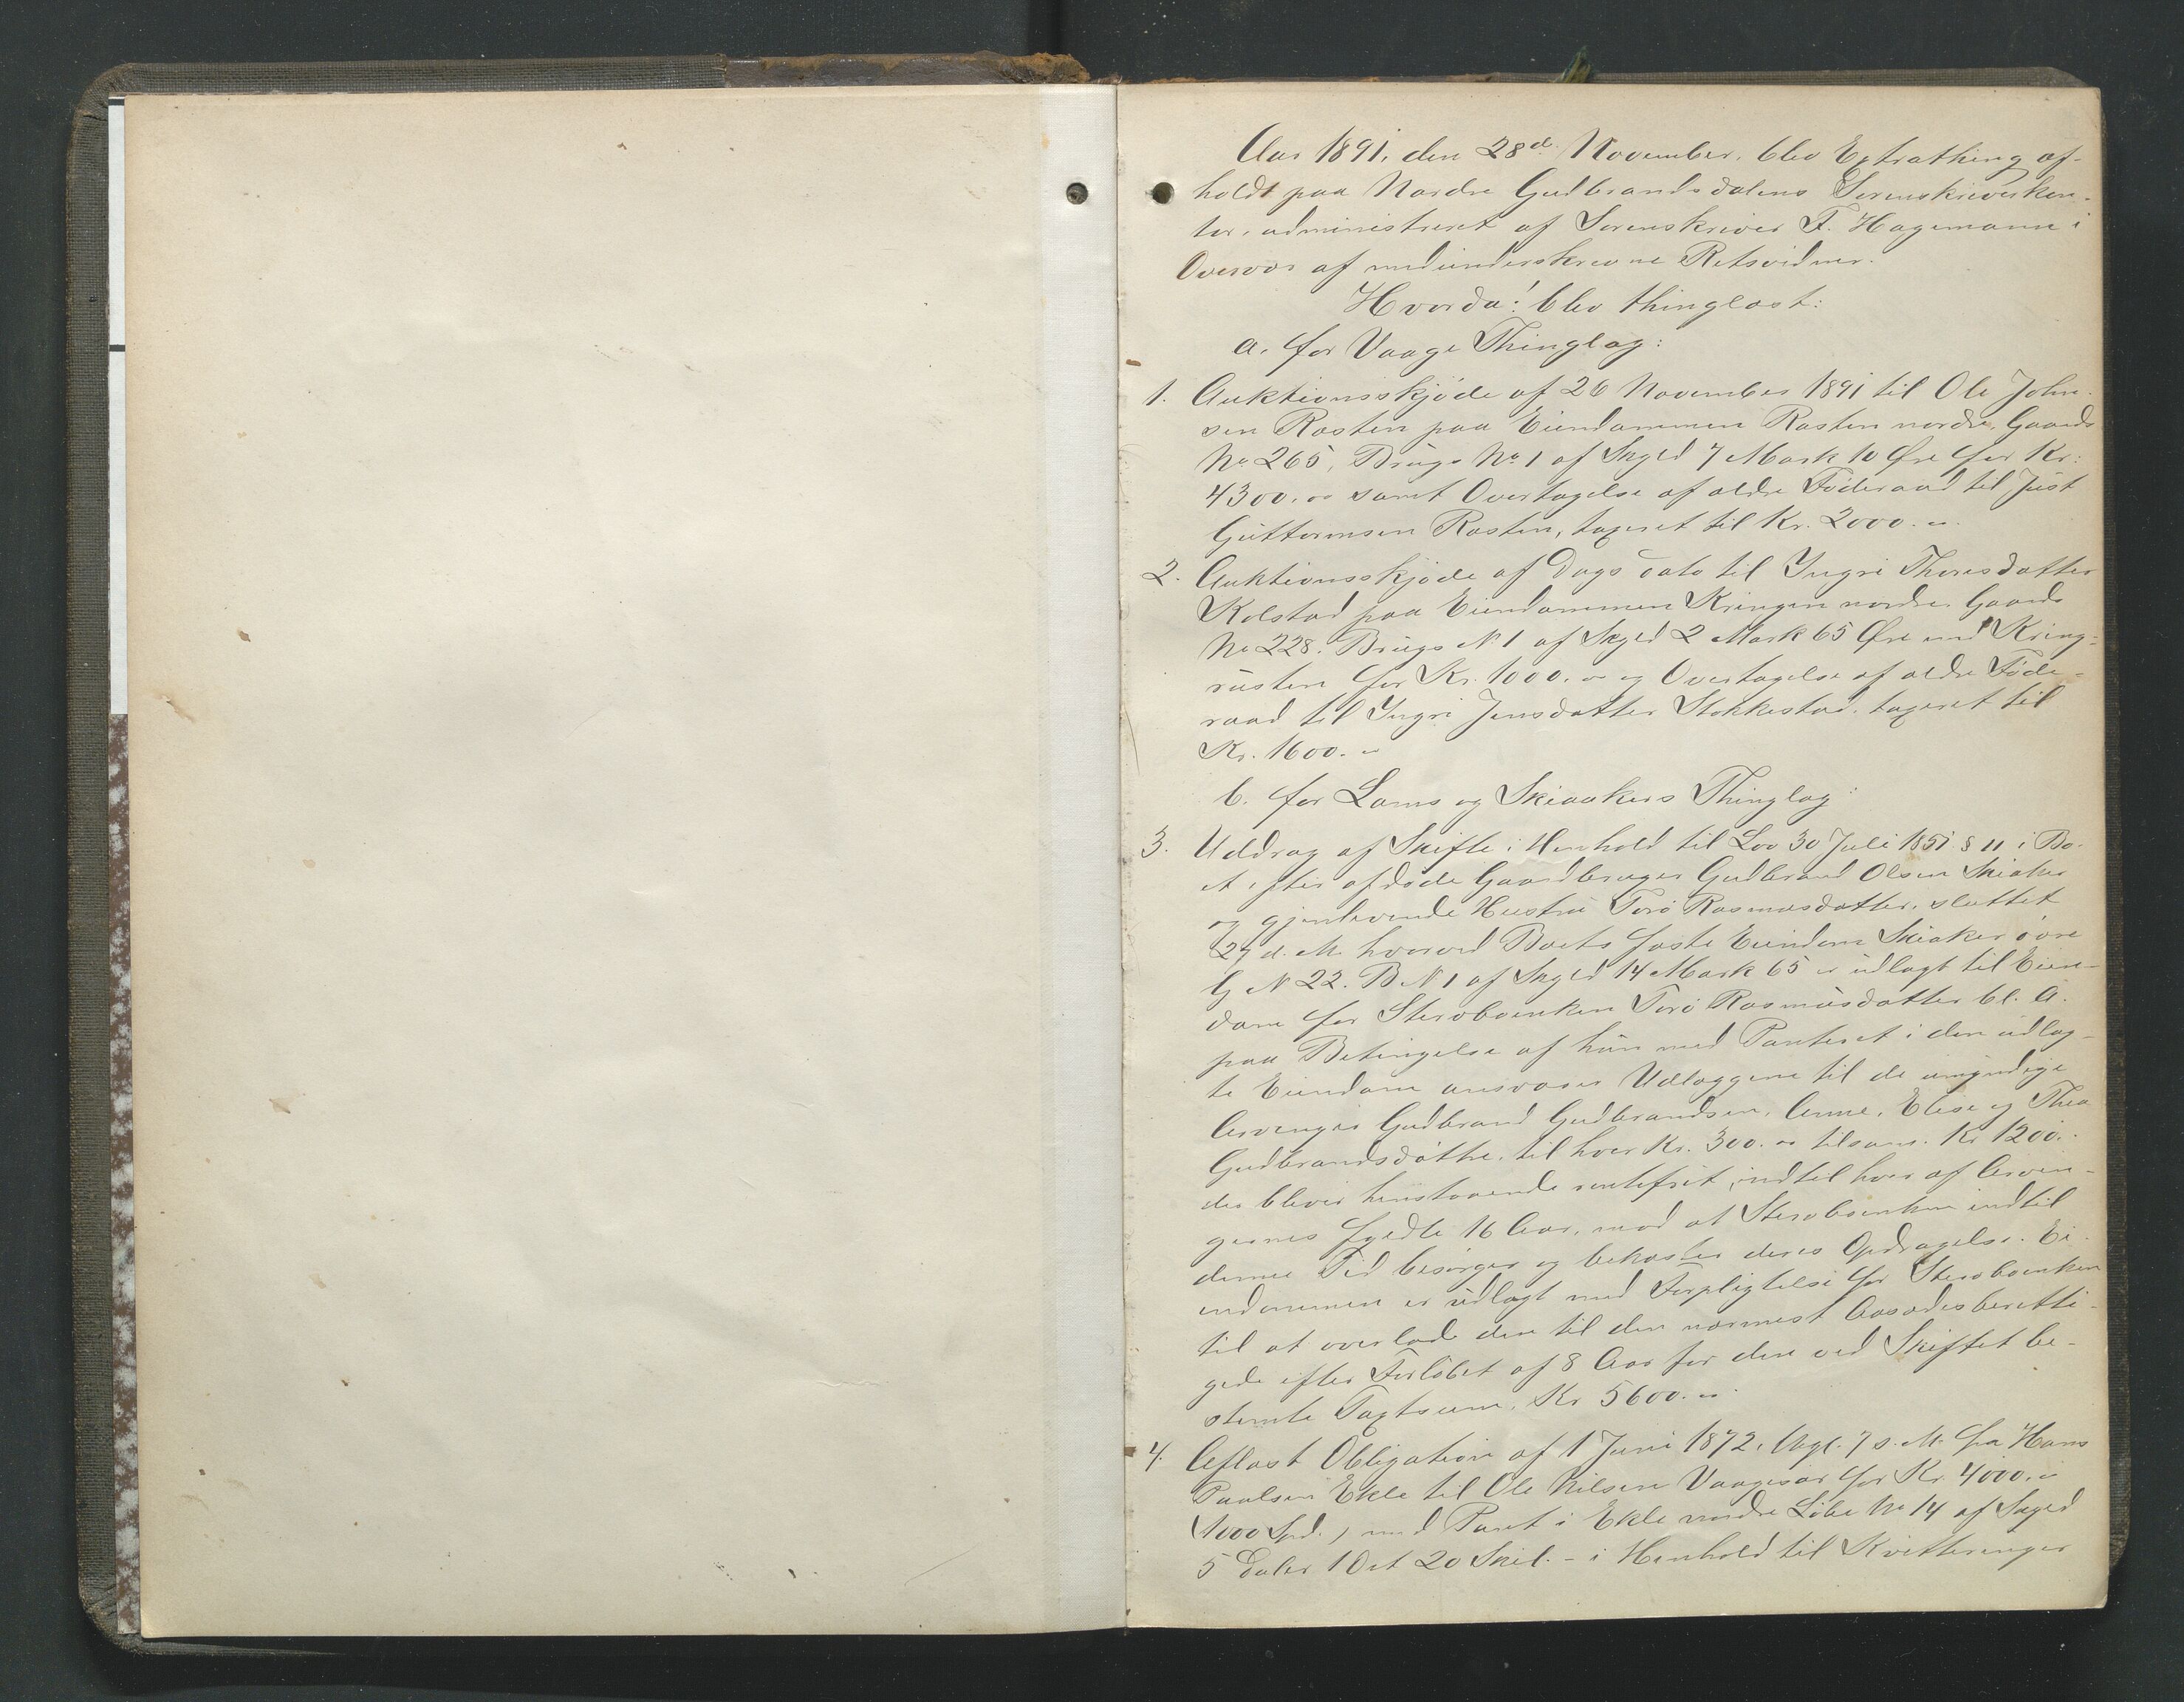 Aar 1891, den 28d. November, blev Extrathing af-
holdt paa Nordre Gudbrandsdalens Sorenskriverkon-
tor, administreret af Sorenskriver F. Hagemann i
Overvær af medunderskrevne Retsvidner.
Hvorda! blev thinglæst:
a. for Vaage Thinglag:
1. Auktionsskjøde af 26 November 1891 til Ole John-
sen Rosten paa Eiendommen Rosten nordre, Gaards
No 265, Brugs No 1 af Skyld 7 Mark 10 Øre for Kr:
4300.00 samt Overtagelse af ældre Føderaad til Just
Guttormsen Rosten, taxeret til Kr. 2000.00.
2. Auktionsskjøde af Dags Dato til Yngri Thoresdatter
Kolstad paa Eiendommen Kringen nordre Gaards
No 228. Brugs N 1 af Skyld 2 Mark 65 Øre med Kring-
rusten for Kr. 1000.00 og Overtagelse af ældre Føde-
raad til Yngri Jensdatter Stokkestad, taxeret til
Kr. 1600.00
b. for Loms og Skiaakers Thinglag:
3. Uddrag af Skifte i Henhold til Lov 30 Juli 1851 § 11 i Bo-
et efter afdøde Gaardbruger Gudbrand Olsen Skiaker
og gjenlevende Hustru Torø Rasmusdatter, sluttet
27 d. M. hvorved Boets faste Eiendom Skiaker øvre
G N 22. B N 1 af Skyld 14 Mark 65 er udlagt til Eien-
dom for Stervboenken Torø Rasmusdatter bl. A.
paa Betingelse af hun med Panteret i den udlag-
te Eiendom ansvarer Udlæggene til de umyndige
Arvinger Gudbrand Gudbrandsen, Anne, Elise og Thea
Gudbrandsdøttre, til hver Kr. 300.00 tilsam. Kr 1200.
der bliver henstaaende rentefrit, indtil hver af Arvin-
gernes fyldte 16 Aar, mod at Stervboenken indtil
denne Tid besørger og bekoster deres Opdragelse. Ei-
endommen er udlagt med Forpligtelse for Stervboenken
til at overlade den til den nærmest Aasædesberetti-
gede efter Forløbet af 8 Aar for den ved Skiftet be-
stemte Taxtsum, Kr 5600.00.
4. Aflæst Obligation af 1 Juni 1872, thgl. 7 s. M. fra Hans
Paulsen Ekle til Ole Nilsen Vaagesar for Kr. 4000.00
(1000 Spd.) med Pant i Ekle nordre Løbe No 14 af Skyld
5 Daler 1 Ort 20 Skil. - i Henhold til Kvitteringer